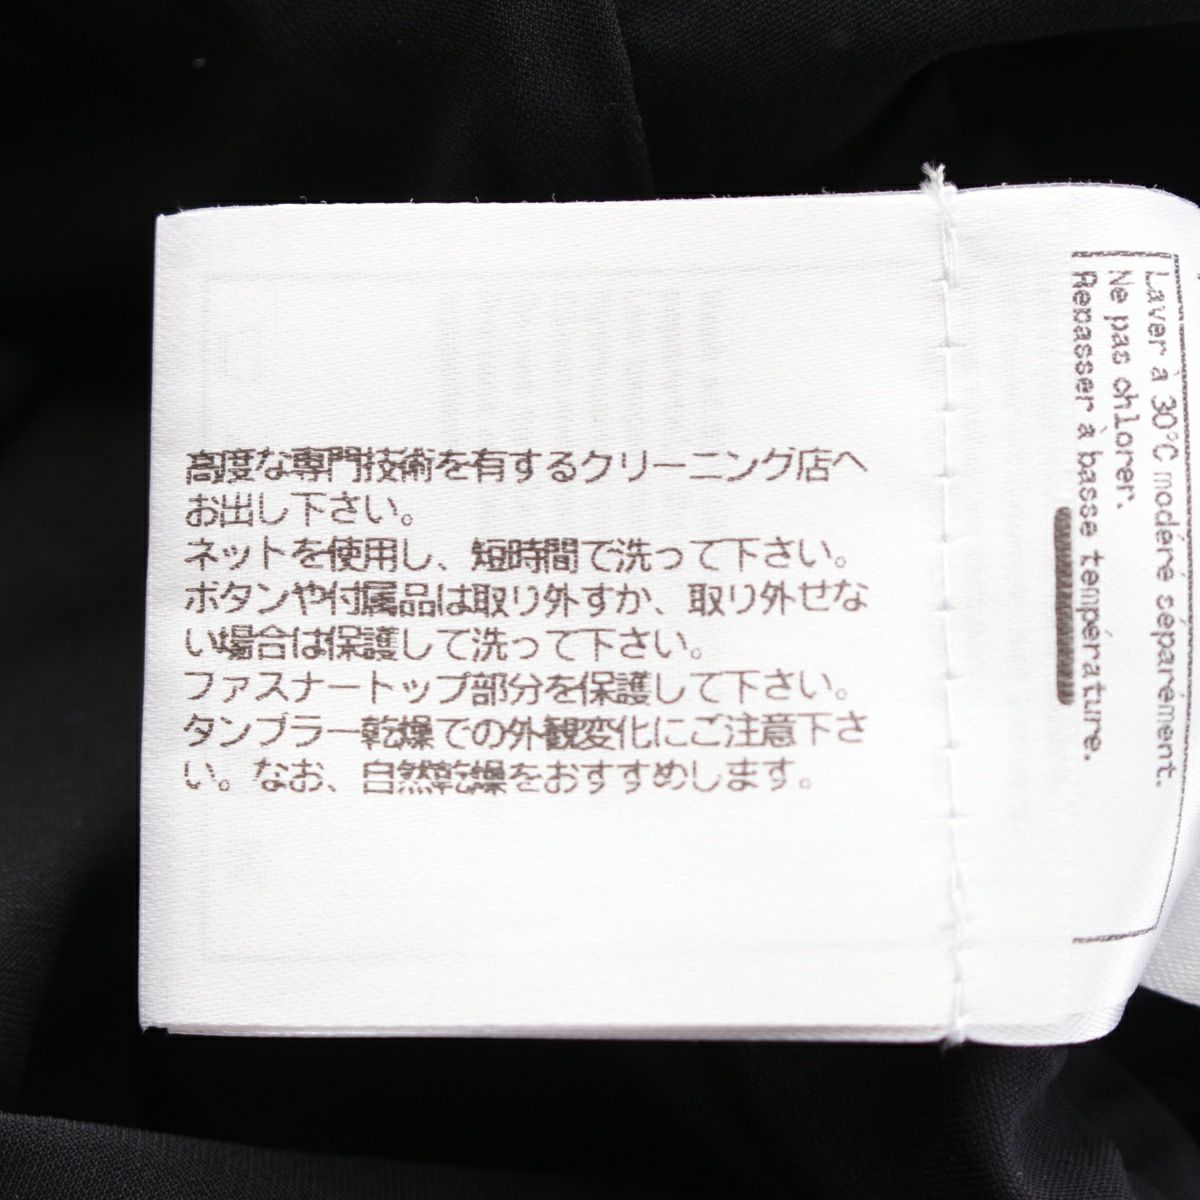 高度な専門技術を有するクリーニング店へ
お出し下さい。
ネットを使用し、短時間で洗って下さい。
ボタンや付属品は取り外すか、取り外せな
い場合は保護して洗って下さい。
ファスナートップ部分を保護して下さい。
タンブラー乾燥での外観変化にご注意下さ
い。なお、自然乾燥をおすすめします。
Laver à 30°C modéré séparément.
Ne pas chlorer.
Repasser à basse température.